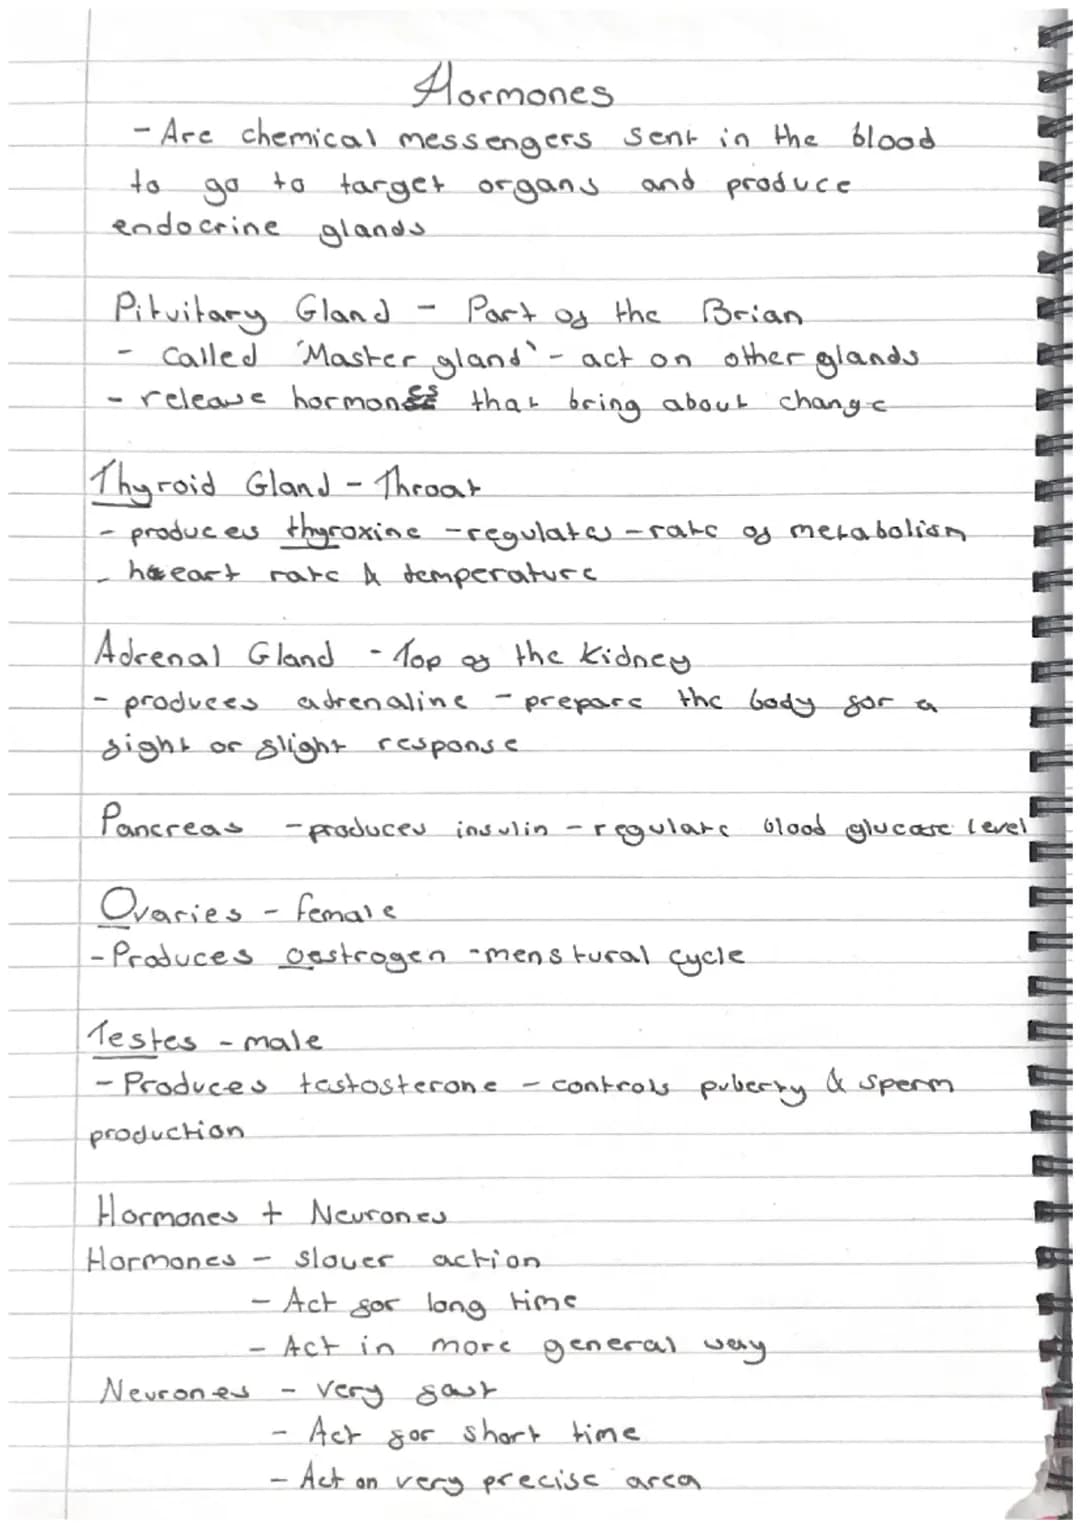 Hormones
- Are chemical messengers sent in the blood
to go to target organs and produce
endocrine glands
Pituitary Gland - Part of the Brian
- Called 'Master gland' - act on other glands
- release hormones that bring about change
Thyroid Gland - Throat
- produces thyroxine - regulates - rate of metabolism
- heart rate & temperature
Adrenal Gland - Top of the kidney
- produces adrenaline - prepare the body for a
fight or flight response
Pancreas - produces insulin - regulate blood glucose level
Ovaries - female
- Produces oestrogen - menstural cycle
Testes - male
- Produces testosterone - controls puberty & sperm
production
Hormones + Neurones
Hormones - slower action
- Act for long time
- Act in more general way
Neurones - very fast
- Act for short time
- Act on very precise area